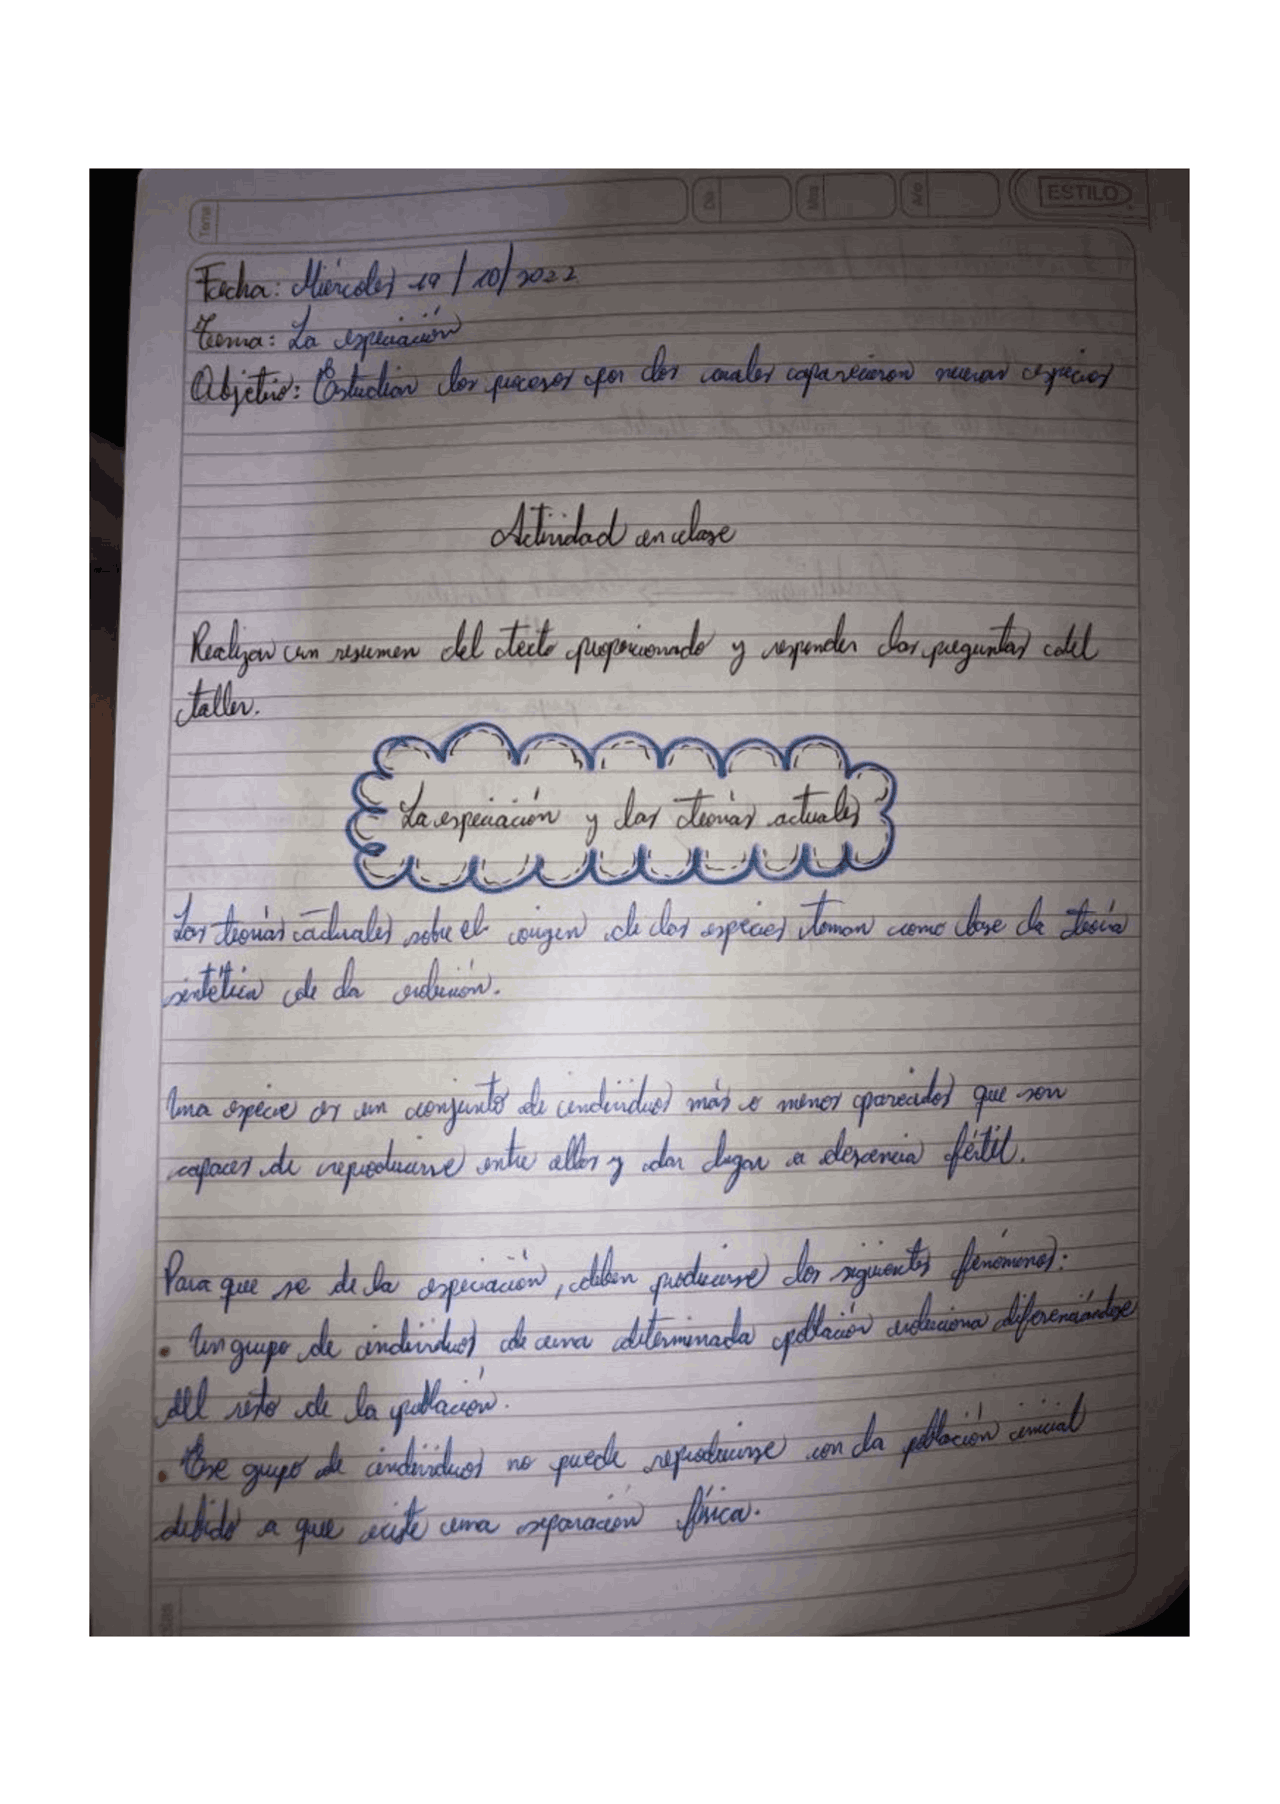 Tema Día Mes Año ESTILO
Fecha: Miércoles 19/10/2022
Tema: La especiación
Objetivo: Estudiar los procesos por los cuales aparecieron nuevas especies
Actividad en clase
Realizar un resumen del texto proporcionado y responder las preguntas del
taller.
La especiación y las teorías actuales
Las teorías actuales sobre el origen de las especies toman como base la teoría
sintética de la evolución.
Una especie es un conjunto de individuos más o menos parecidos que son
capaces de reproducirse entre ellos y dar lugar a descencia fértil.
Para que se de la especiación, deben producirse los siguientes fenómenos:
• Un grupo de individuos de una determinada población evoluciona diferenciándose
del resto de la población.
• Ese grupo de individuos no puede reproducirse con la población inicial
debido a que existe una separación física.